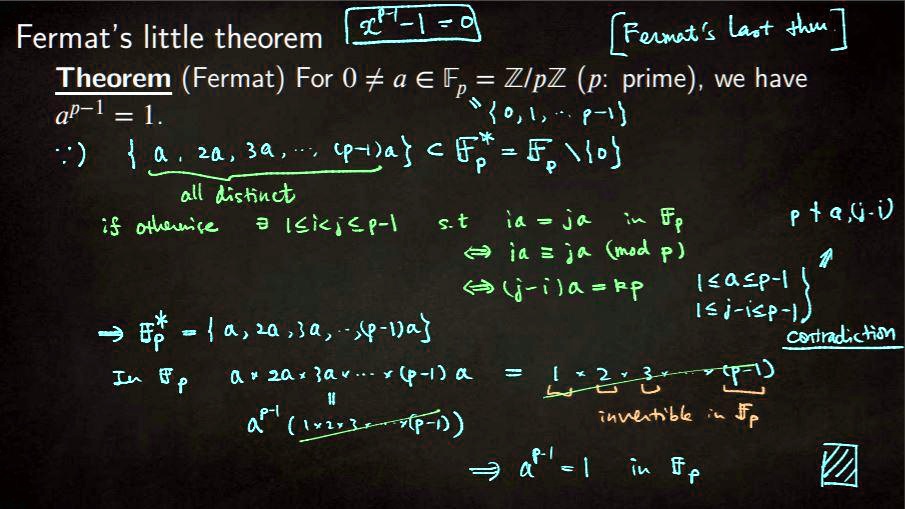 Fermat's little theorem x^{p-1} - 1 = 0 [Fermat's last thm.]
Theorem (Fermat) For 0 ≠ a ∈ 𝔽_p = ℤ/pℤ (p: prime), we have
a^{p−1} = 1.
" {0, 1, ... p-1}
∵) { a, 2a, 3a, ..., (p-1)a} ⊂ 𝔽_p^* = 𝔽_p \ {0}
all distinct
if otherwise ∃ 1≤i<j≤p-1 s.t ia = ja in 𝔽_p
⇔ ia ≡ ja (mod p)
⇔ (j-i)a = kp
p ∤ a, (j-i)
1≤a≤p-1
1≤j-i≤p-1
contradiction
→ 𝔽_p^* = {a, 2a, 3a, ..., (p-1)a}
In 𝔽_p a × 2a × 3a × ... × (p-1)a = 1 × 2 × 3 × ... × (p-1)
invertible in 𝔽_p
||
a^{p-1} (1×2×3×...×(p-1))
⇒ a^{p-1} = 1 in 𝔽_p